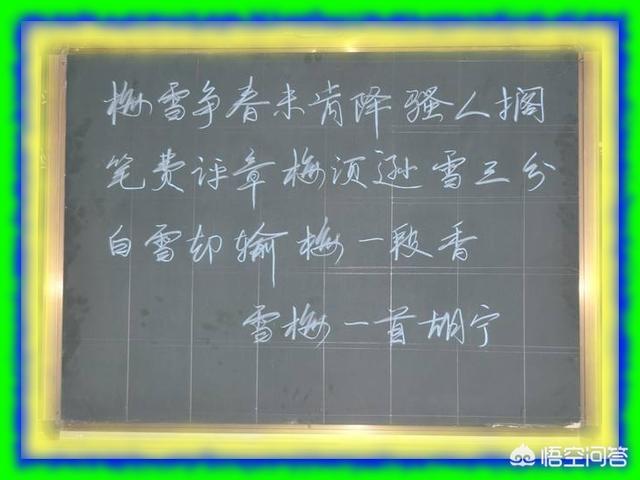 梅雪争春未肯降骚人搁
笔费评章梅须逊雪三分
白雪却输梅一段香
雪梅一首胡宁
悟空问答